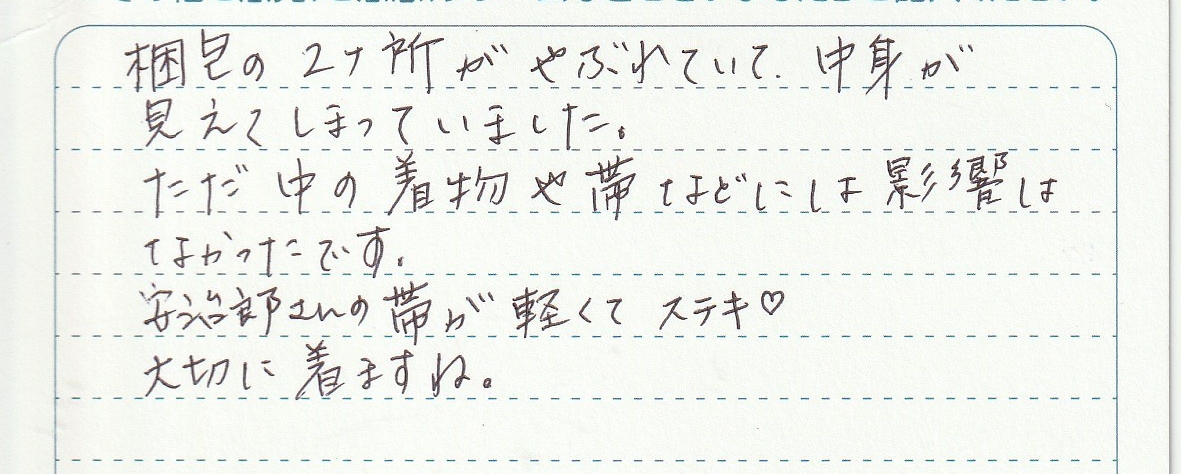 梱包の2ヶ所がやぶれていて、中身が
見えてしまっていました。
ただ中の着物や帯などには影響は
なかったです。
安治郎さんの帯が軽くてステキ♡
大切に着ますね。